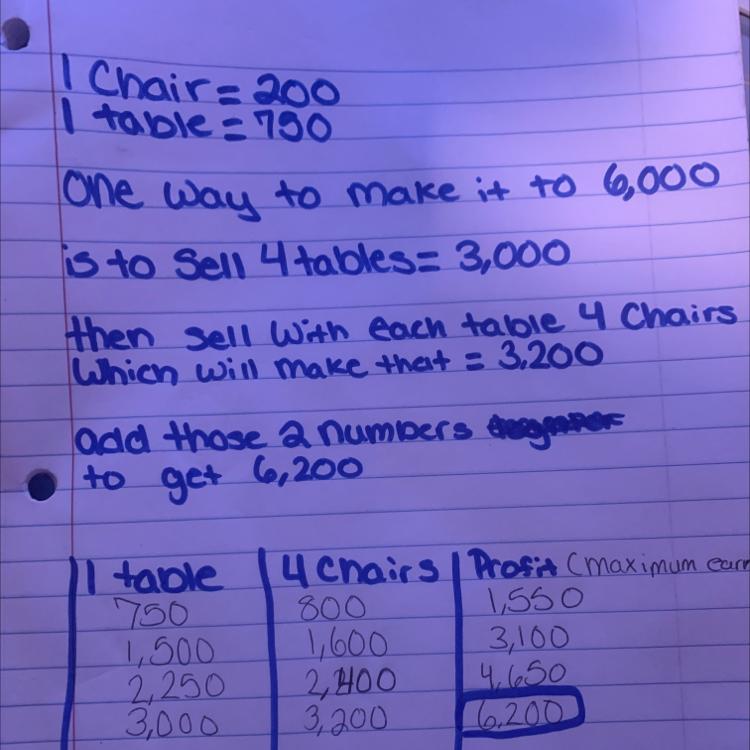 1 Chair = 200
1 table = 750
One way to make it to 6,000
is to sell 4 tables = 3,000
then sell with each table 4 Chairs
Which will make that = 3,200
add those 2 numbers
to get 6,200
1 table | 4 Chairs | Profit (maximum earn
750 800 1,550
1,500 1,600 3,100
2,250 2,400 4,650
3,000 3,200 6,200